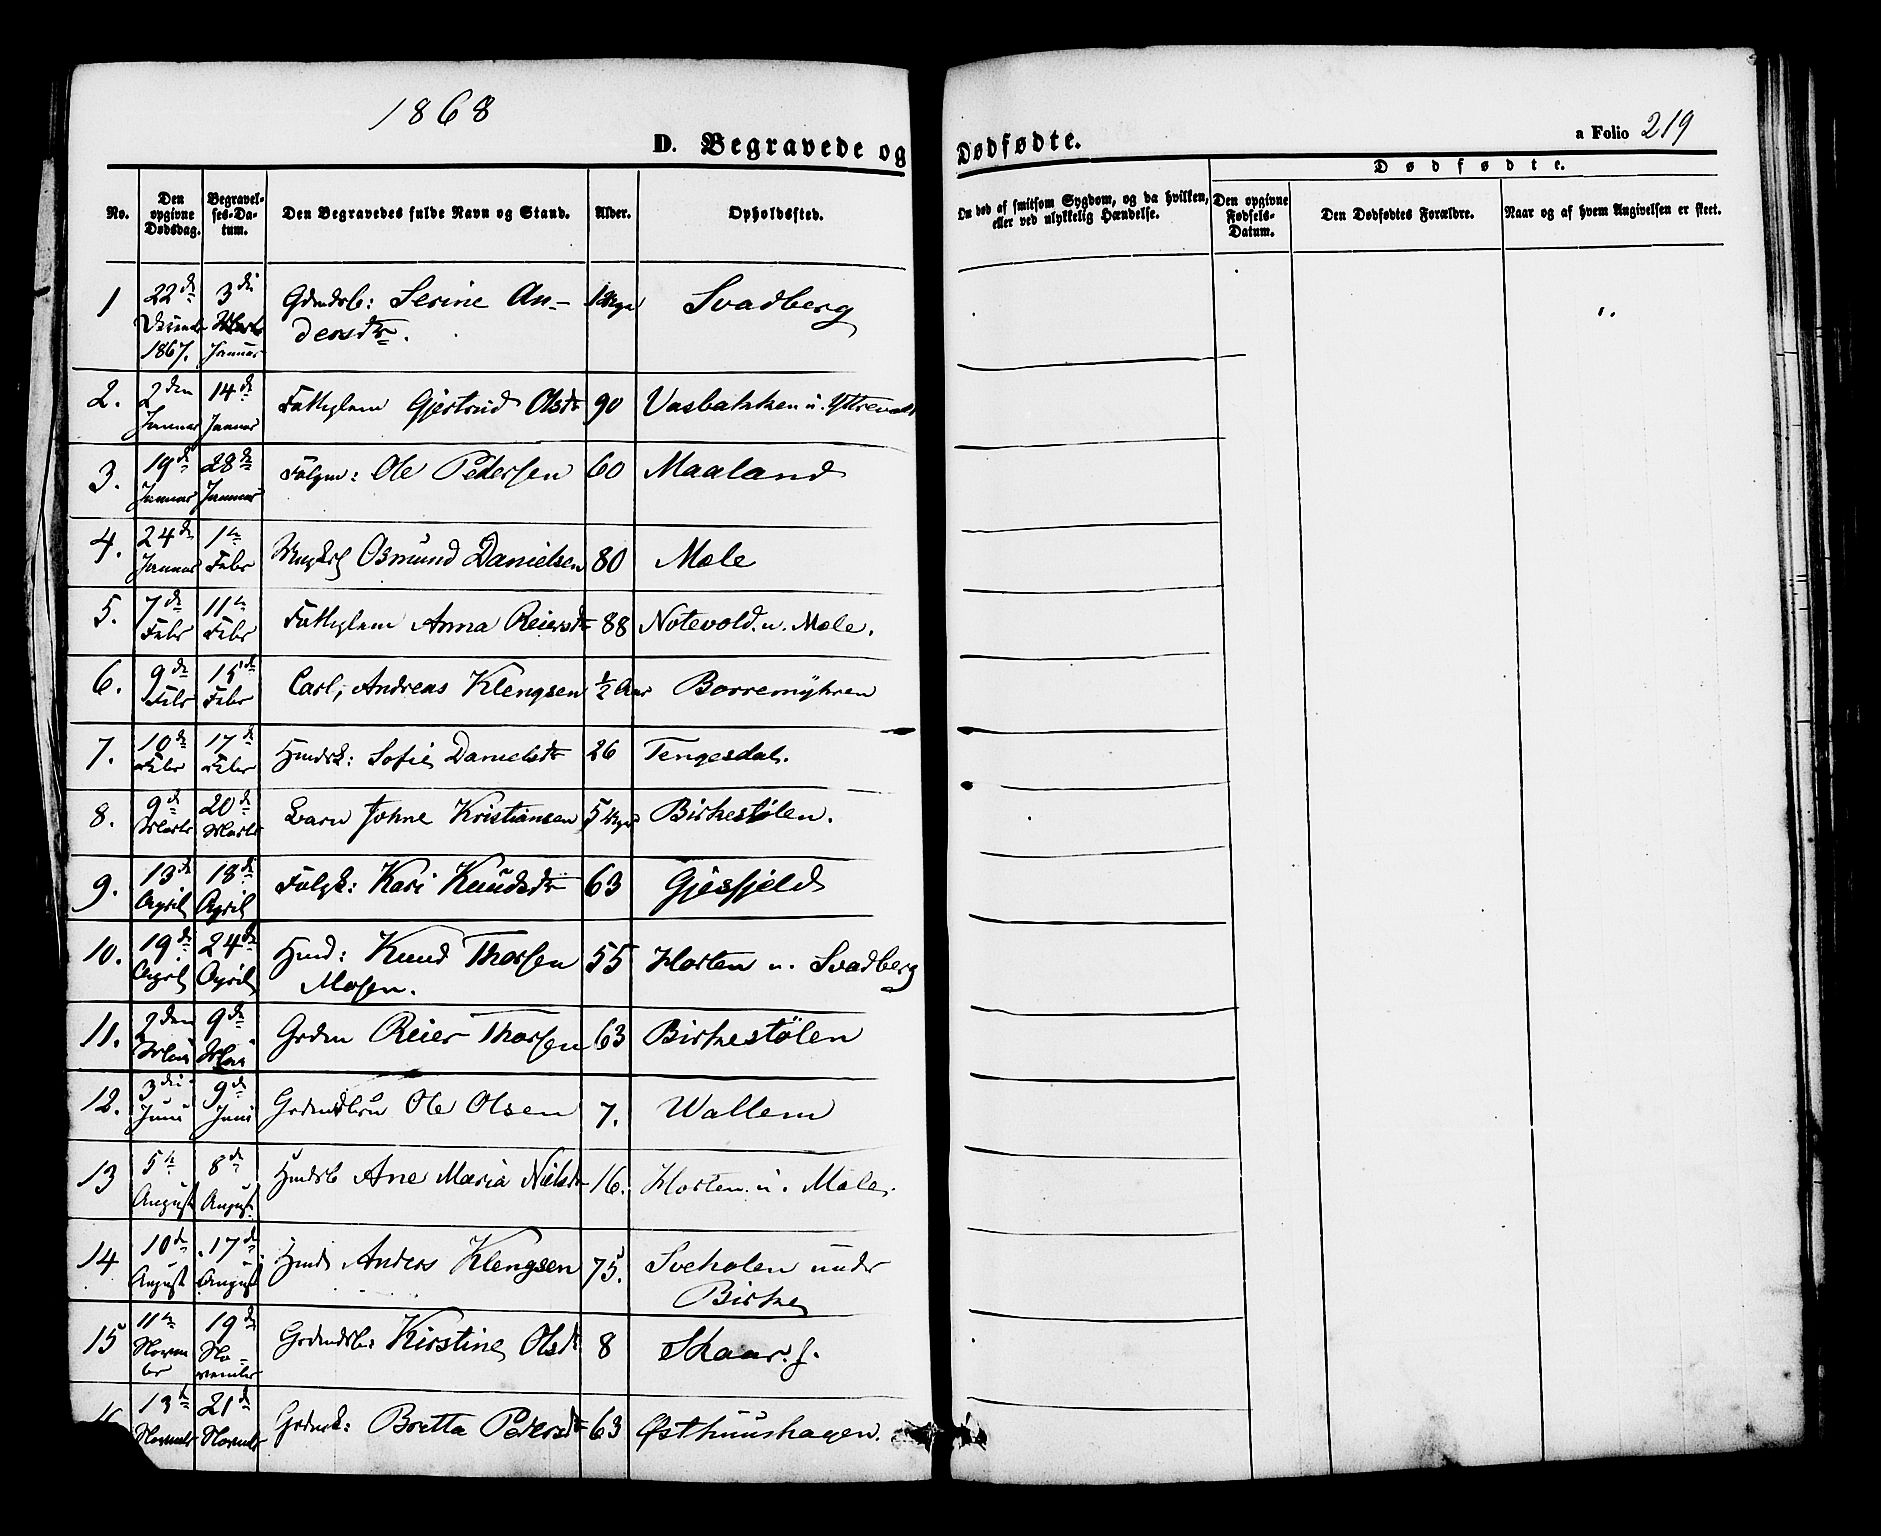 1868
D. Begravede og Dødfødte.
a Folio 219
No.
Den opgivne Dødsdag.
Begravelses-Datum.
Den Begravedes fulde Navn og Stand.
Alder.
Opholdssted.
Om død af smitsom Sygdom, og da hvilken, eller ved ulykkelig Hændelse.
Dødfødte.
Den opgivne Fødsels-Datum.
Den Dødfødtes Forældre.
Naar og af hvem Angivelsen er skeet.
1 22de 1867. 3di Januar Serine Andersdtr. Svadberg
2. 2den Januar 14de Januar Fattiglem Gjertrud Olsdtr 90 Vasbakken u.
3. 19de Januar 28de Januar Ole Pedersen 60 Maaland
4. 24de Januar 1te Febr Osmund Danielsen 80 Mæle
5. 7de Febr 11te Febr Fattiglem Anna Reiersdtr 88 Notevold u. Mæle.
6. 9de Febr 15de Febr Carl Andreas Klengsen 1/2 Aar Borremyhren
7. 10de Febr 17de Febr Hmdsk: Sofie Danielsdtr 26 Tengesdal.
8. 9de Marts 20de Marts Barn Johne Kristiansen 5 Birkestølen.
9. 13de April 18de April Kari Knudsdtr 63 Gjesfjeld
10. 19de April 24de April Hmd: Knud Thorsen Mosen. 55 Horten u. Svadberg
11. 2den Mai 9de Mai Grdm Reier Thorsen 63 Birkestølen
12. 3die Juni 9de Juni Ole Olsen 7. Wallem
13 5te August 8de August Hmdsb Ane Maria Nielsdtr 16. Horten u. Mæle.
14 10de August 17de August Hmd Anders Klengsen 75. Sveholen under Birke
15 11te Novembr 19de November Kirstine Olsdtr 8 Skaar. f.
13de Novembr 21de Novembr Bretta Pedersdtr 63 Østhuushagen.